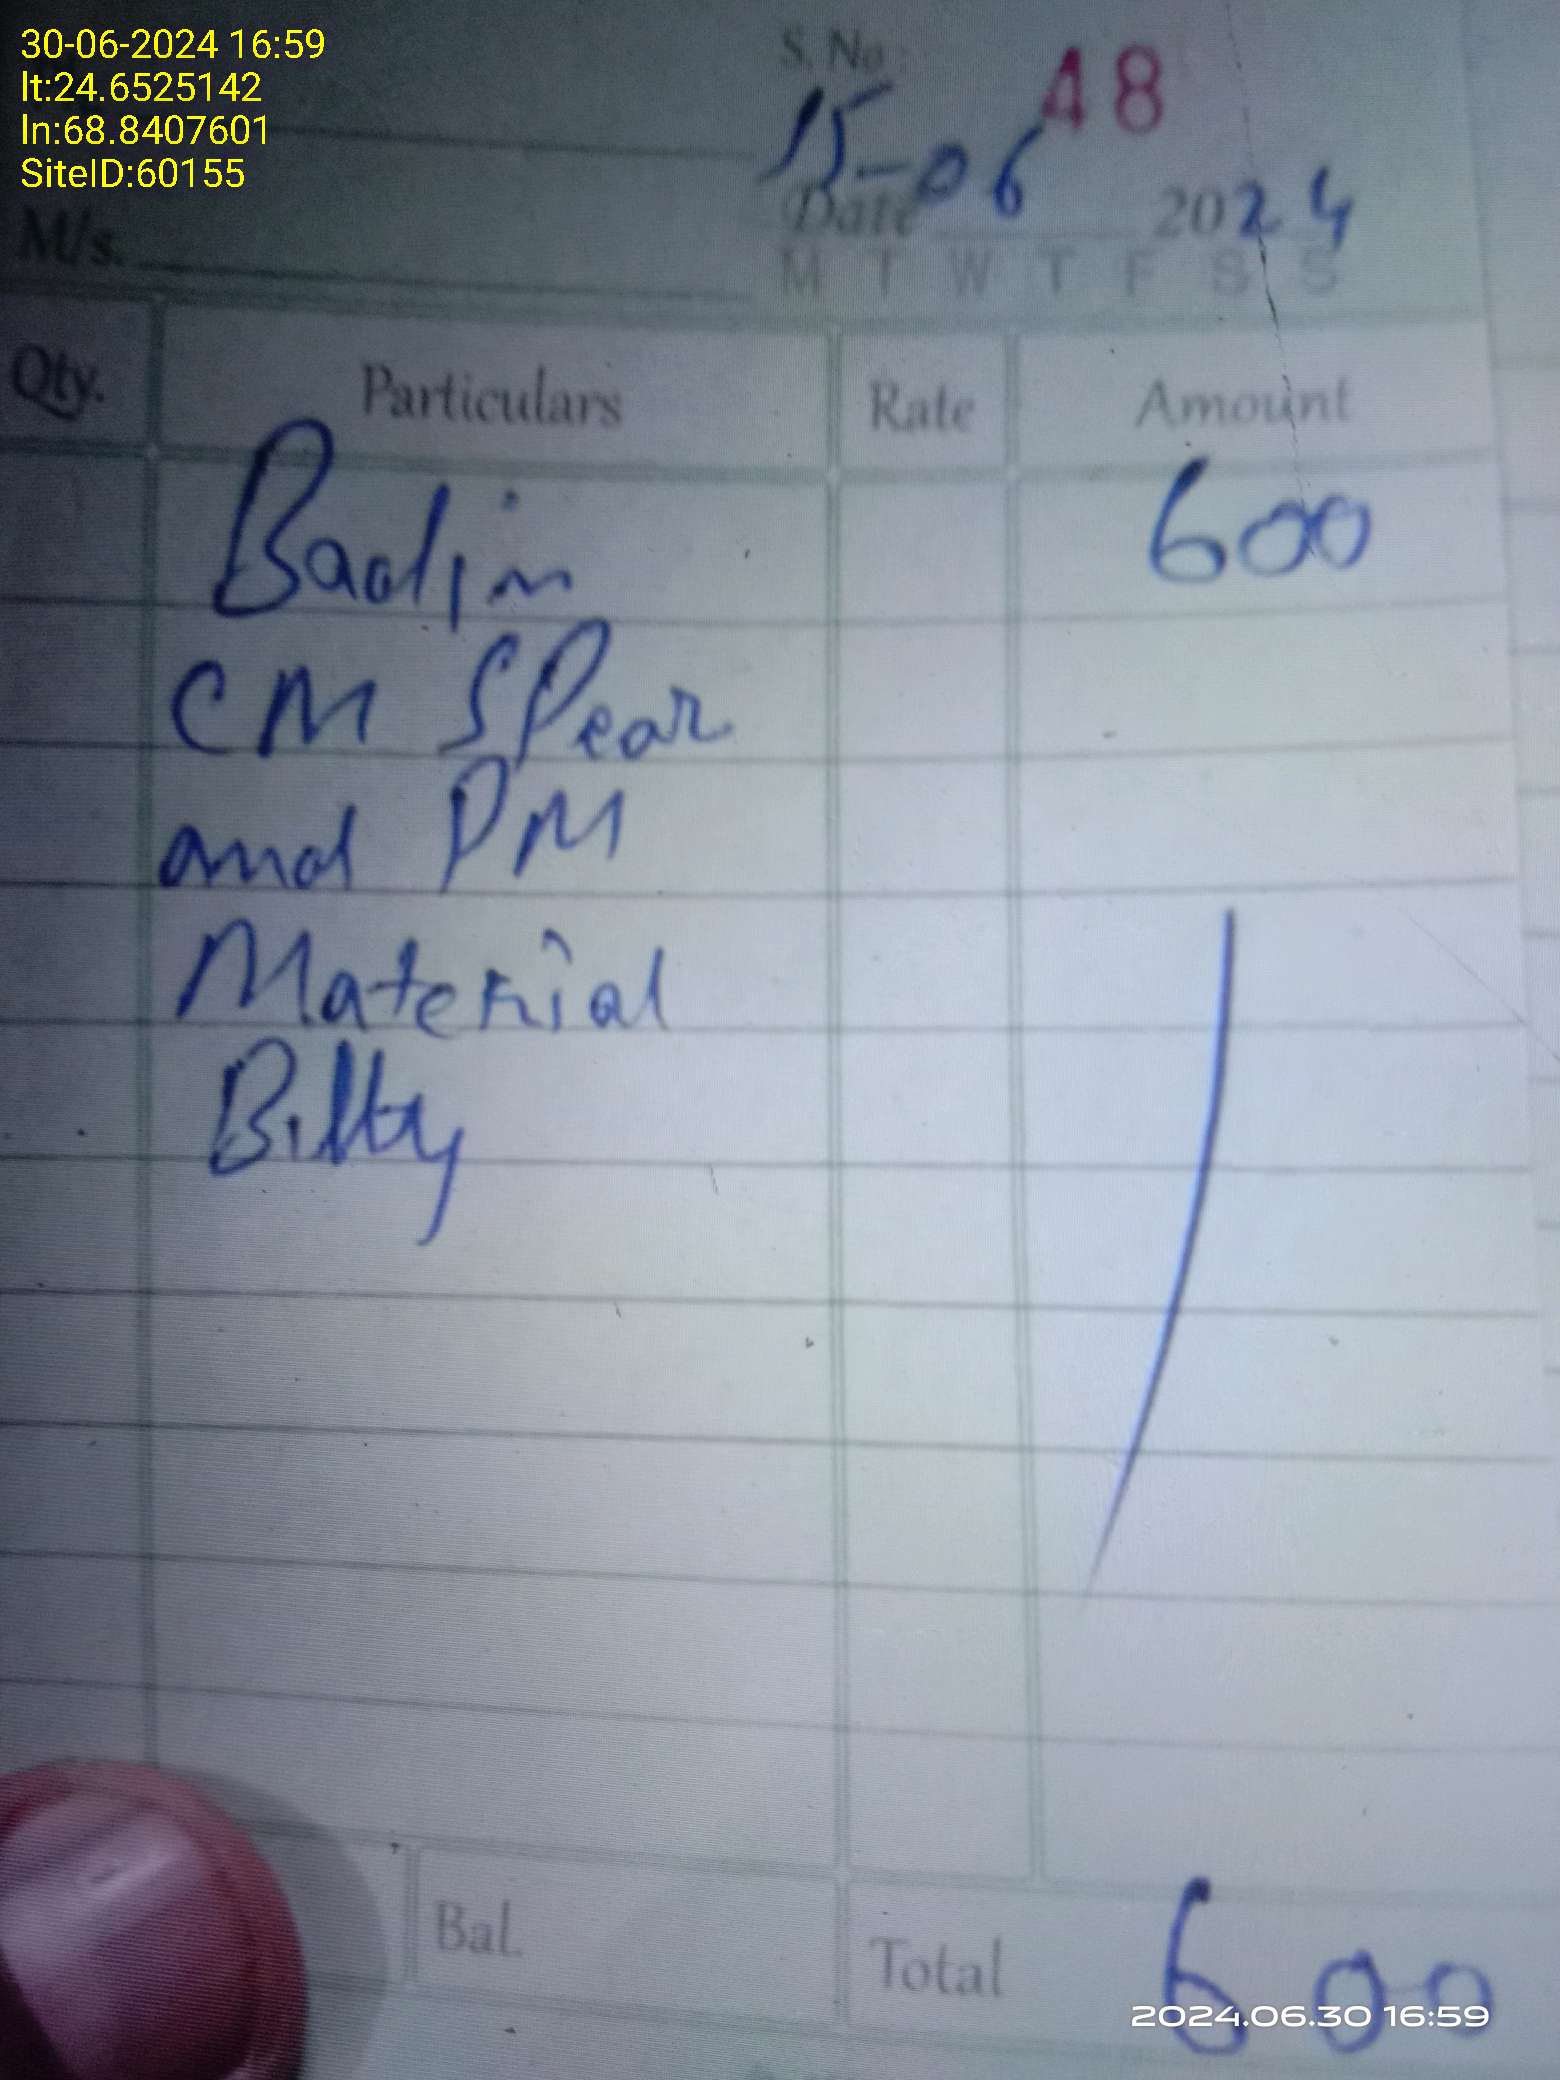 30-06-2024 16:59
lt:24.6525142
ln:68.8407601
SiteID:60155
S.No 48
15-06
Date 2024
M/s.
M T W T F S S
Qty. Particulars Rate Amount
Badin 600
CM SPear
and PM
Material
Bilty
Bal. Total 600
2024.06.30 16:59